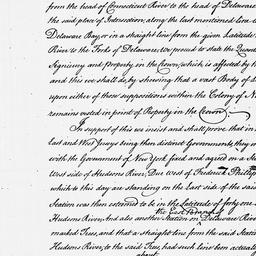 from the head of Connecticut River to the head of Delaware
the said place of Intersection; along the last mentioned Line to
Delaware Bay, or in a straight line from the given Latitude
River to the Forks of Delaware, We proceed to state the
Seigniory and Property in the Crown, which is affected by th
and this we shall do, by shewing that a vast Body of
upon either of their suppositions within the Colony of N
remains vested in point of Property in the Crown
In support of this we insist and shall prove, that in
East and West Jerseys being then distinct Governments, they
with the Government of New York fixed and agreed on a
West side of Hudsons River, Due west of Frederick Phillip
which to this day are standing on the East side of the said
Station was then esteemed to be in the Latitude of forty one
the East
Hudsons River; And also another Station on Delaware River
marked Trees, and that a straight line from the said Statio
Hudsons River, to the said Trees, had such Line been actuall
about